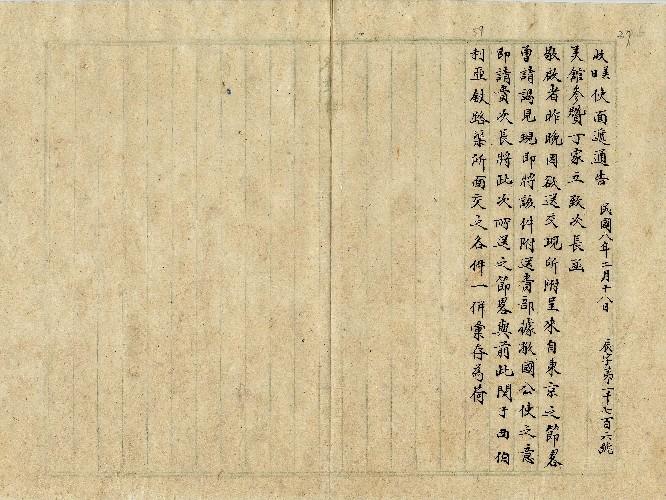 27
59
收美使面遞通告 民國八年二月十八日 辰字第二千七百六號
美館參贊丁家立致次長函
敬啟者昨晚因欲送交現所附呈來自東京之節畧
曾請謁見現即將該件附送貴部據敝國公使之意
即請貴次長將此次所送之節畧與前此関于西伯
利亞鉄路渠所面交之各件一併彙存為荷